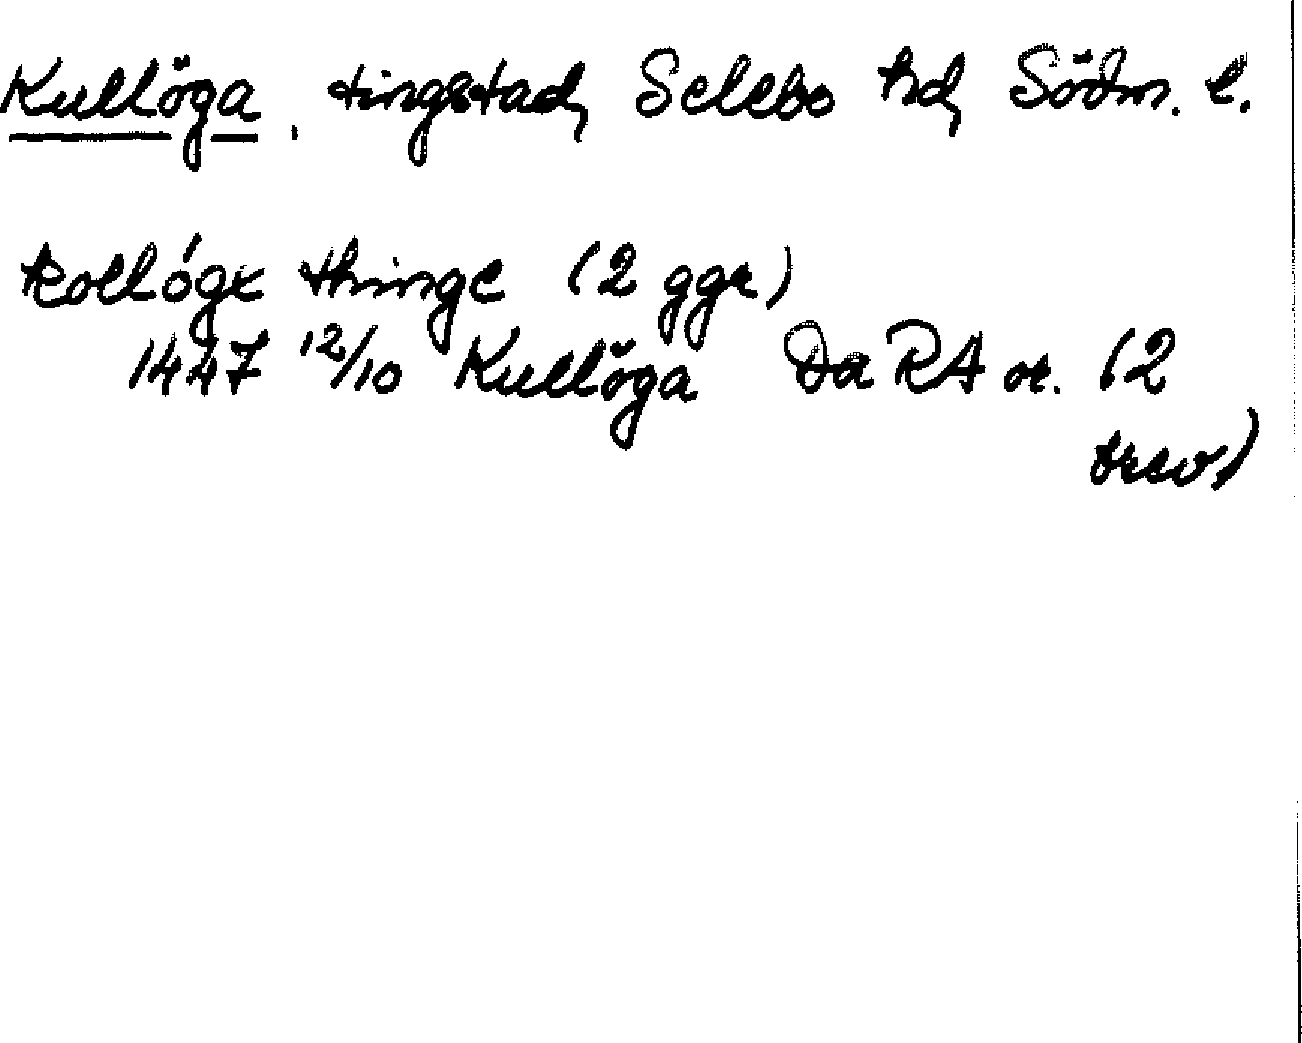 Kullöga, tingstad, Selebo hd, Södm. l.
kollógx thinge (2 ggr)
1447 12/10 Kullöga Da RA or. (2
brev)